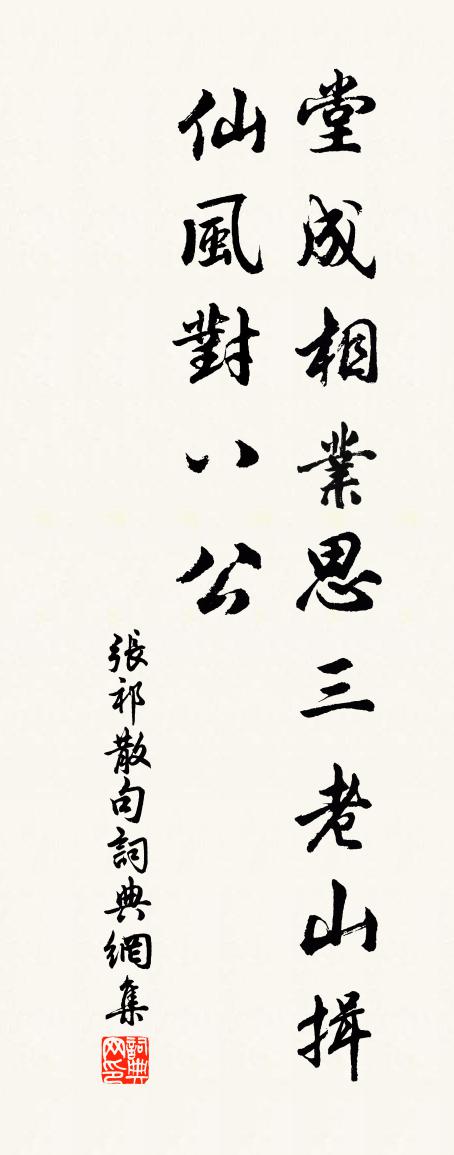 堂成相業思三老山揖
仙風對八公
張祁散句詞典網集
詞典网印